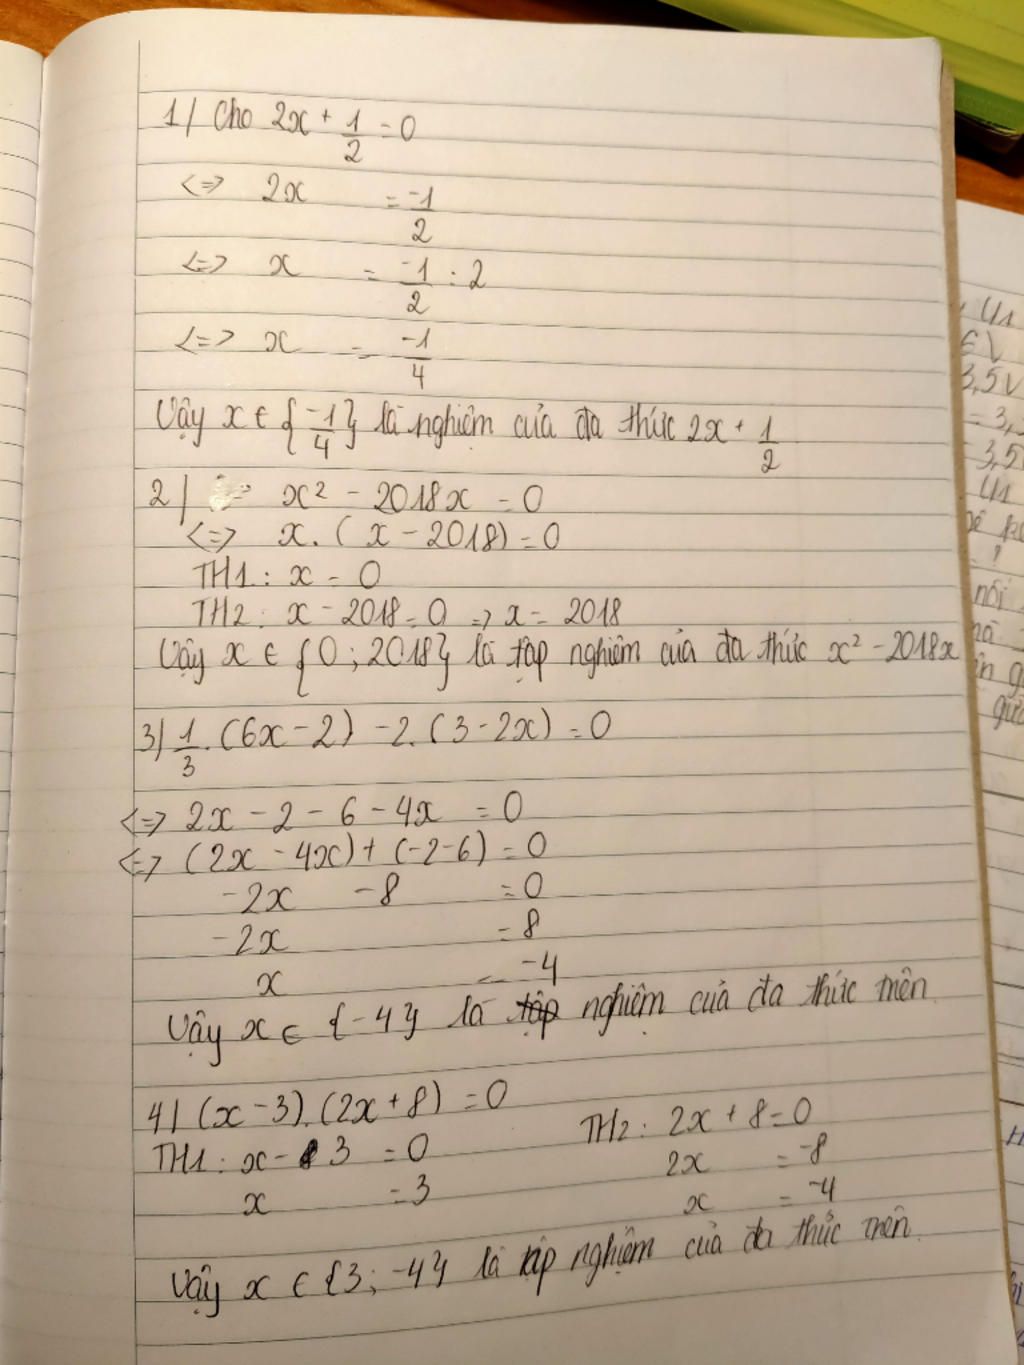 1/ Cho 2x + 1/2 = 0
<=> 2x = -1/2
<=> x = -1/2 : 2
<=> x = -1/4
Vậy x ∈ {-1/4} là nghiệm của đa thức 2x + 1/2
2/ x² - 2018x = 0
<=> x. (x - 2018) = 0
TH1: x = 0
TH2: x - 2018 = 0 => x = 2018
Vậy x ∈ {0; 2018} là tập nghiệm của đa thức x² - 2018x
3/ 1/3. (6x - 2) - 2. (3 - 2x) = 0
<=> 2x - 2 - 6 - 4x = 0
<=> (2x - 4x) + (-2-6) = 0
-2x - 8 = 0
-2x = 8
x = -4
Vậy x ∈ {-4} là nghiệm của đa thức trên
4/ (x - 3). (2x + 8) = 0
TH1: x - 3 = 0
x = 3
TH2: 2x + 8 = 0
2x = -8
x = -4
Vậy x ∈ {3; -4} là tập nghiệm của đa thức trên.
U1
6V
3,5V
= 3,
3,5
U1
nối